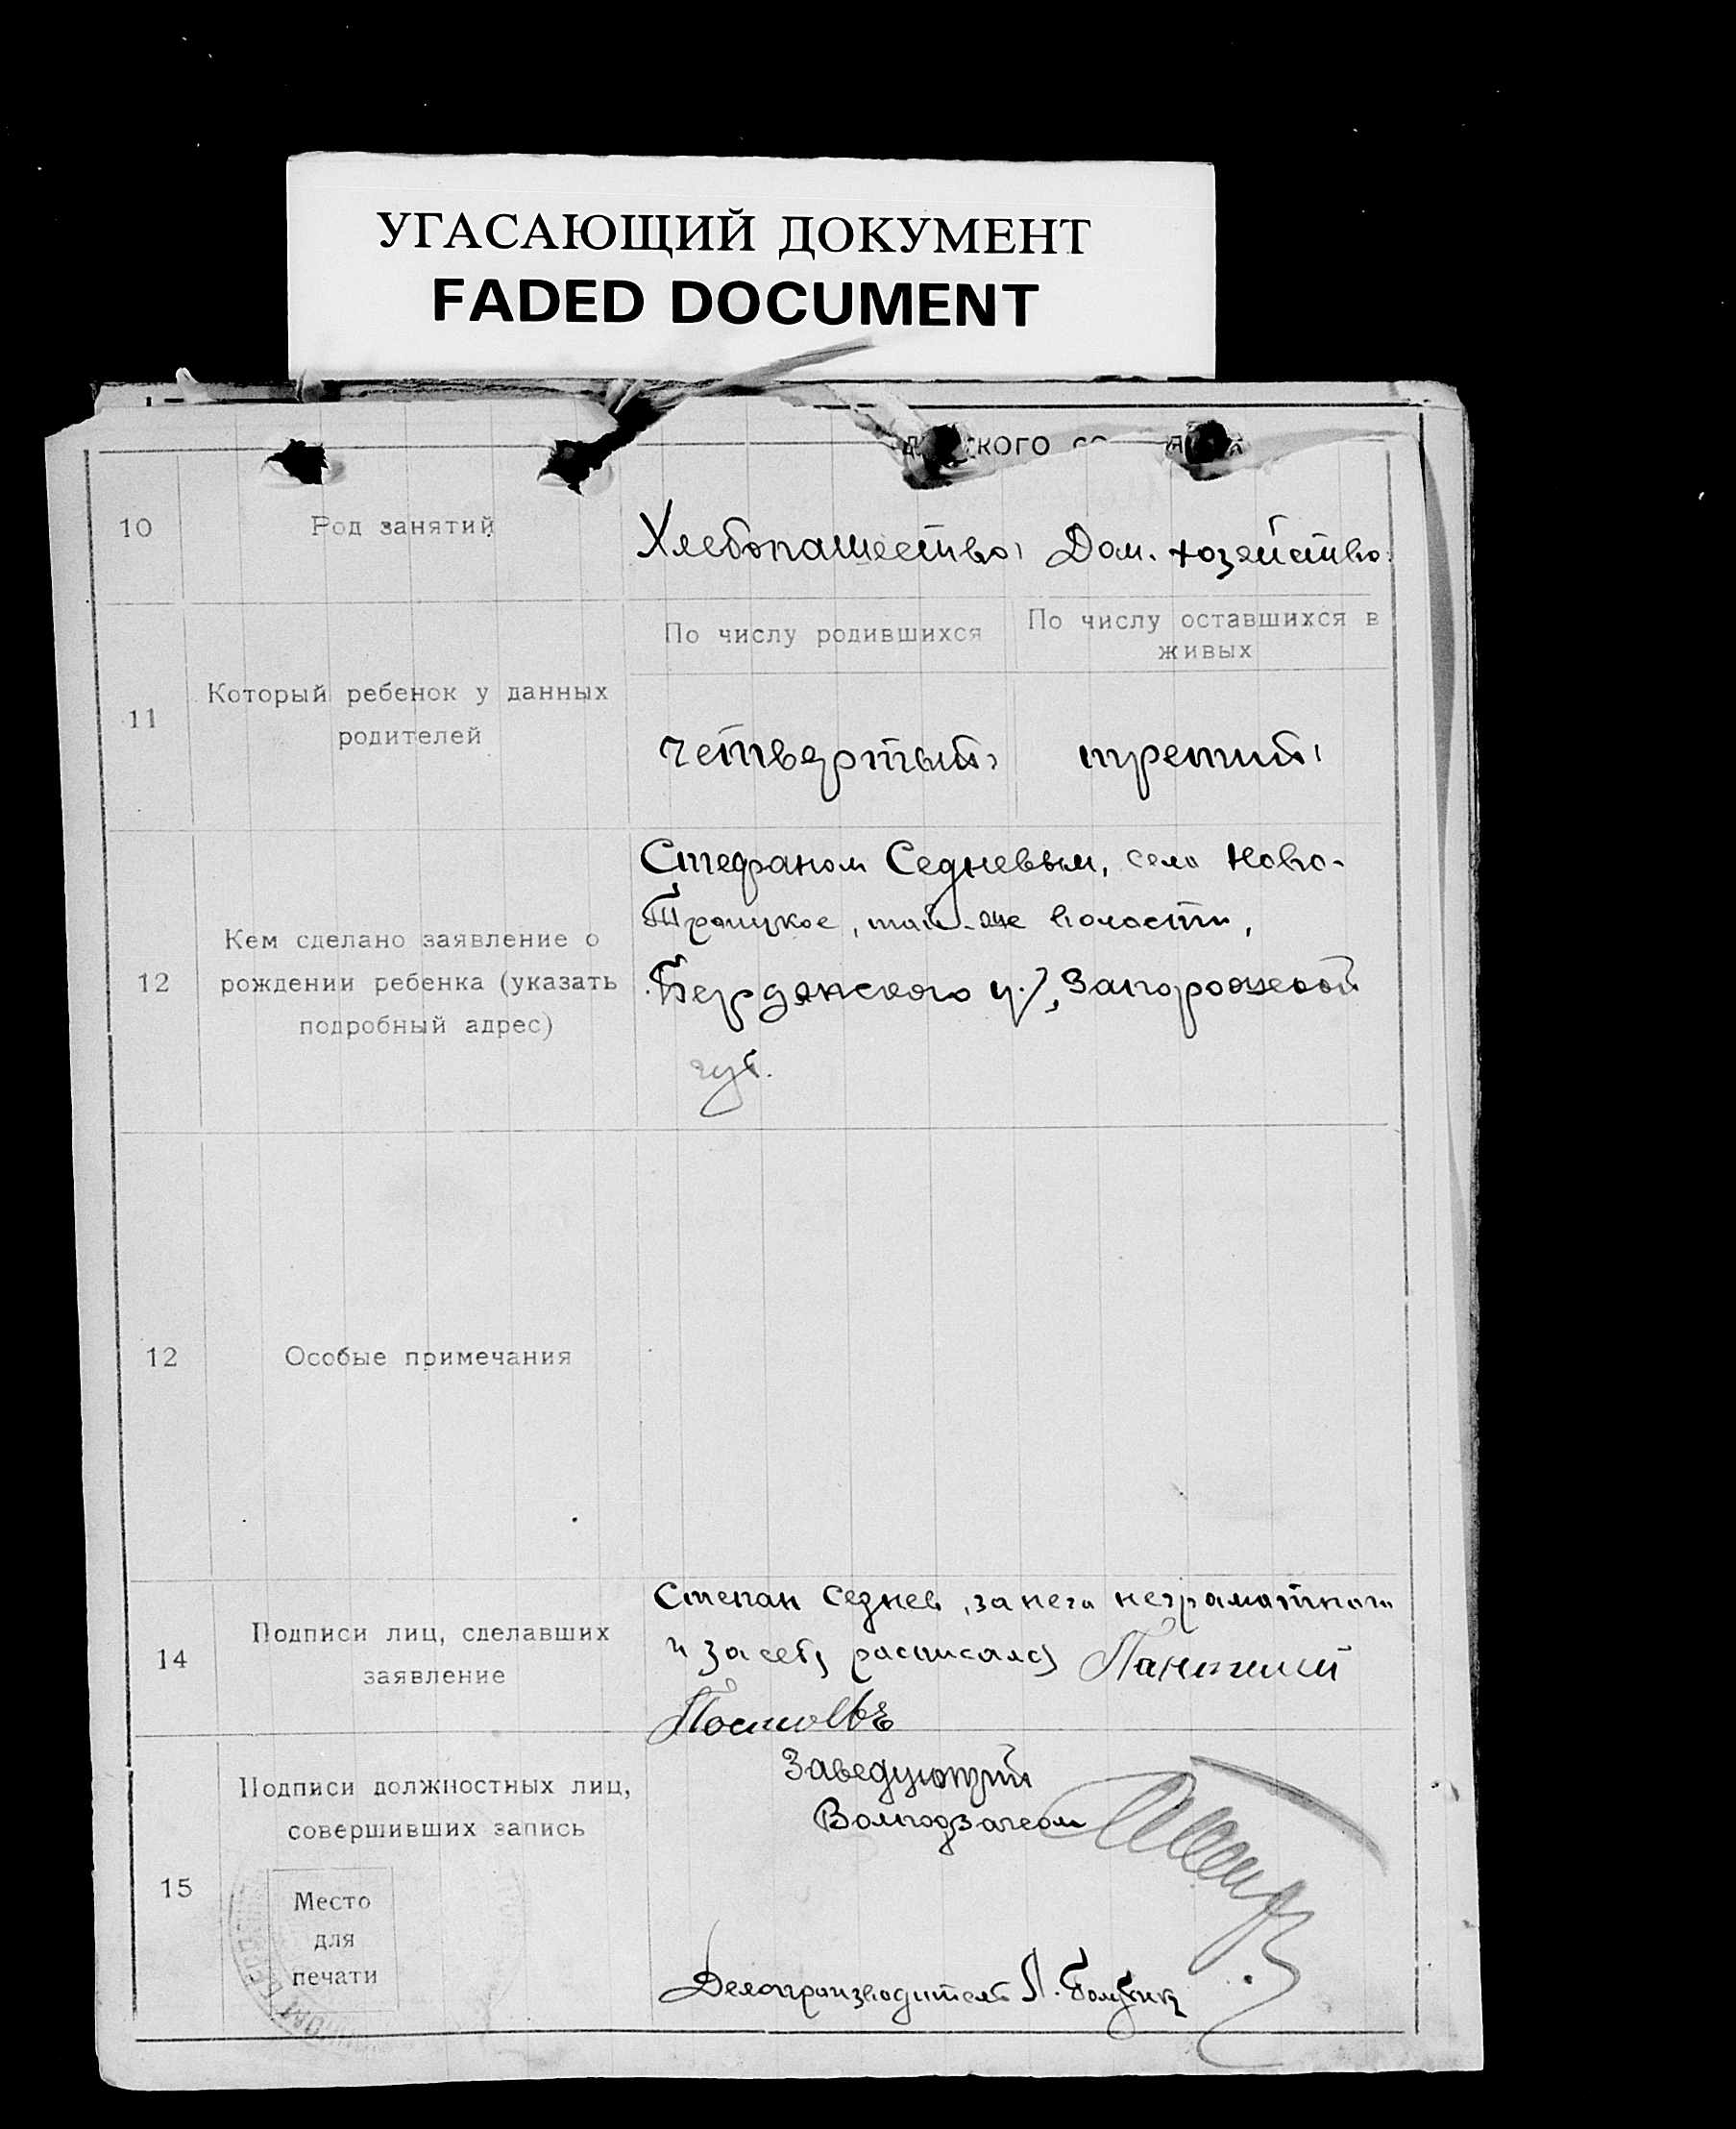 УГАСАЮЩИЙ ДОКУМЕНТ
FADED DOCUMENT
10
Род занятий
Хлебопашество, Дом. хозяйство.
11
Который ребенок у данных
родителей
По числу родившихся
По числу оставшихся в
живых
четвертый,
третий,
12
Кем сделано заявление о
рождении ребенка (указать
подробный адрес)
Стефаном Седневым, село Ново-
Троицкое, той-же волости,
Бердянского у., Запорожской
губ.
12
Особые примечания
14
Подписи лиц, сделавших
заявление
Степан Седнев, за него неграмотного
и за себя расписался
15
Подписи должностных лиц,
совершивших запись
Место
для
печати
Заведующий
Волподзагсом
Делопроизводитель